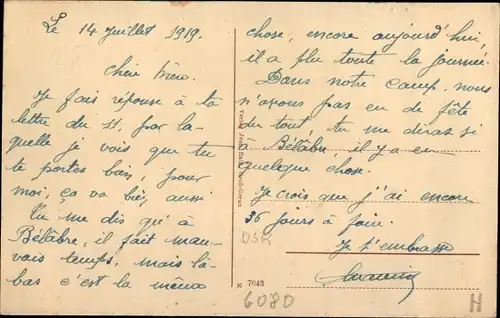 Le 14 Juillet 1919.
Je fais réponse à ta
lettre du 11, par la-
quelle je vois que tu
te portes bien, pour
moi, ça va bien, aussi
Tu me dis qu'à
Bélâbre, il fait mau-
vais temps, mais là-
bas c'est la même
chose, encore aujourd'hui,
il a plu toute la journée.
Dans notre camp, nous
n'avons pas eu de fête
du tout, tu me diras si
à Bélâbre, il y a eu
quelque chose.
Je crois que j'ai encore
36 jours à faire.
Je t'embrasse
Verlag
7643
6080
H